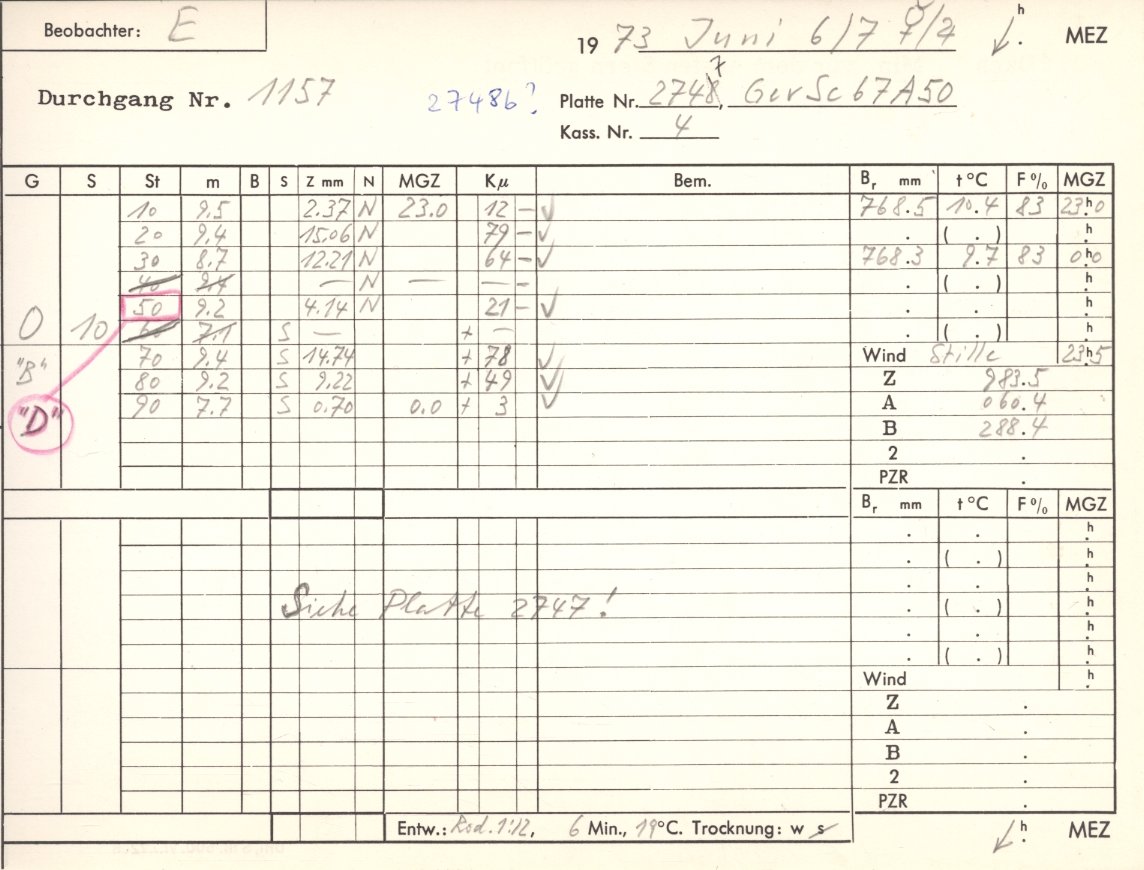 Beobachter: E
19 73 Juni 6/7 ☿/♃ h . MEZ
Durchgang Nr. 1157 27486? Platte Nr. 2748 7, GevSc67A50
Kass. Nr. 4
G S St m B S Z mm N MGZ Kμ Bem. Br mm t °C F % MGZ
10 9.5 2.37 N 23.0 12 – ✓ 768.5 10.4 83 23h0
20 9.4 15.06 N 79 – ✓ . ( . ) h.
30 8.7 12.21 N 64 – ✓ 768.3 9.7 83 0h0
40 9.4 — N — — – . ( . ) h.
50 9.2 4.14 N 21 – ✓ . . h.
0 10 60 7.1 S — + — . ( . ) h.
"B" 70 9.4 S 14.74 + 78 ✓ Wind Stille 23h5
80 9.2 S 9.22 + 49 ✓ Z 983.5
"D" 90 7.7 S 0.70 0.0 + 3 ✓ A 060.4
B 288.4
2 .
PZR .
Br mm t °C F % MGZ
. . h.
. ( . ) h.
. . h.
Siehe Platte 2747! . ( . ) h.
. . h.
. ( . ) h.
Wind h.
Z .
A .
B .
2 .
PZR .
Entw.: Rod. 1:12, 6 Min., 19°C. Trocknung: w s
h . MEZ